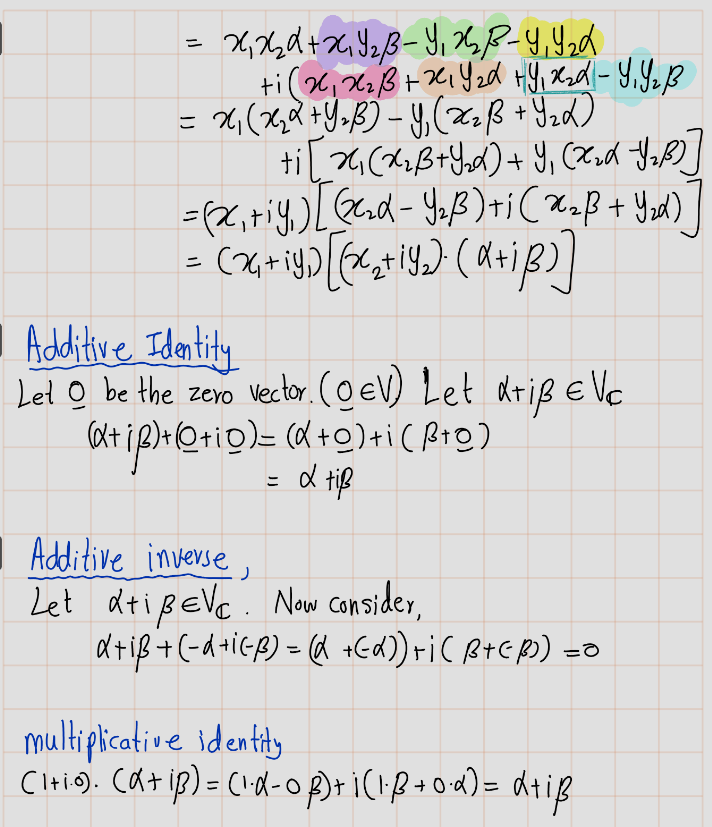 = x₁x₂α+x₁y₂β-y₁x₂β-y₁y₂α
+i(x₁x₂β+x₁y₂α+y₁x₂α-y₁y₂β
= x₁(x₂α+y₂β)-y₁(x₂β+y₂α)
+i[x₁(x₂β+y₂α)+y₁(x₂α-y₂β)]
=(x₁+iy₁)[(x₂α-y₂β)+i(x₂β+y₂α)]
= (x₁+iy₁)[(x₂+iy₂)·(α+iβ)]
Additive Identity
Let 0̲ be the zero vector. (0̲∈V) Let α+iβ ∈ V_ℂ
(α+iβ)+(0̲+i0̲)= (α+0̲)+i(β+0̲)
= α+iβ
Additive inverse,
Let α+iβ∈V_ℂ. Now consider,
α+iβ+(-α+i(-β)=(α+(-α))+i(β+(-β))=0
multiplicative identity
(1+i·0)·(α+iβ)=(1·α-0β)+i(1·β+0·α)= α+iβ